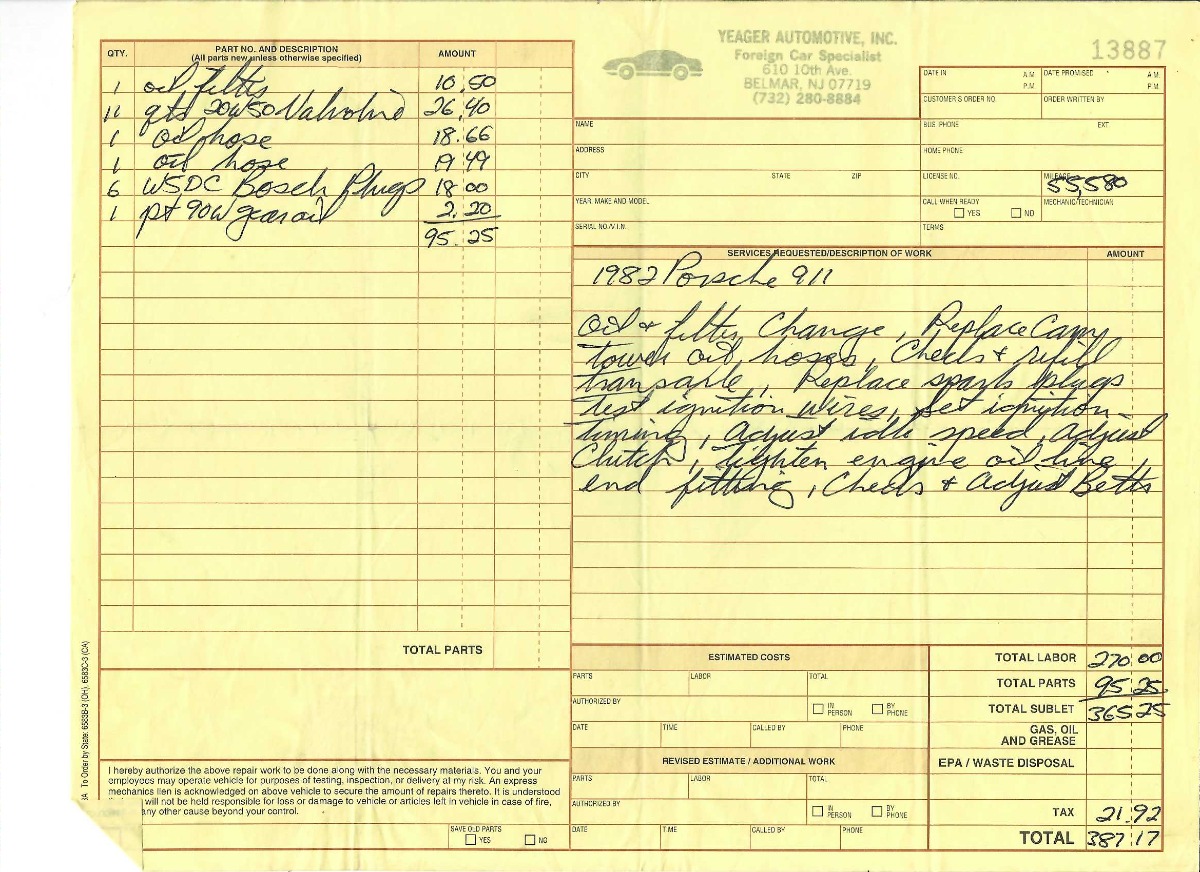 YEAGER AUTOMOTIVE, INC.
Foreign Car Specialist
610 10th Ave.
BELMAR, NJ 07719
(732) 280-8884
13887
QTY. PART NO. AND DESCRIPTION AMOUNT
(All parts new unless otherwise specified)
1 oil filter 10.50
11 qts 20W50 Valvoline 26.40
1 oil hose 18.66
1 oil hose 19 49
6 W5DC Bosch Plugs 18 00
1 pt 90W gear oil 2.20
95.25
TOTAL PARTS
DATE IN A.M. P.M. DATE PROMISED A.M. P.M.
CUSTOMER'S ORDER NO. ORDER WRITTEN BY
NAME BUS. PHONE EXT.
ADDRESS HOME PHONE
CITY STATE ZIP LICENSE NO. MILEAGE 55,580
YEAR, MAKE AND MODEL CALL WHEN READY YES NO MECHANIC/TECHNICIAN
SERIAL NO./V.I.N. TERMS
SERVICES REQUESTED/DESCRIPTION OF WORK AMOUNT
1982 Porsche 911
Oil & filter Change, Replace Cam
tower oil hoses, Check & refill
transaxle, Replace spark plugs
Test ignition wires, Set ignition
timing, Adjust idle speed, Adjust
Clutch, Tighten engine oil line
end fitting, Check & Adjust Belts
ESTIMATED COSTS
PARTS LABOR TOTAL
AUTHORIZED BY IN PERSON BY PHONE
DATE TIME CALLED BY PHONE
REVISED ESTIMATE / ADDITIONAL WORK
PARTS LABOR TOTAL
AUTHORIZED BY IN PERSON BY PHONE
DATE TIME CALLED BY PHONE
TOTAL LABOR 270.00
TOTAL PARTS 95 25
TOTAL SUBLET 365 25
GAS, OIL
AND GREASE
EPA / WASTE DISPOSAL
TAX 21.92
TOTAL 387.17
I hereby authorize the above repair work to be done along with the necessary materials. You and your
employees may operate vehicle for purposes of testing, inspection, or delivery at my risk. An express
mechanics lien is acknowledged on above vehicle to secure the amount of repairs thereto. It is understood
will not be held responsible for loss or damage to vehicle or articles left in vehicle in case of fire,
any other cause beyond your control.
SAVE OLD PARTS
YES NO
To Order by State: 6583B-3 (OH) 6583C-3 (CA)